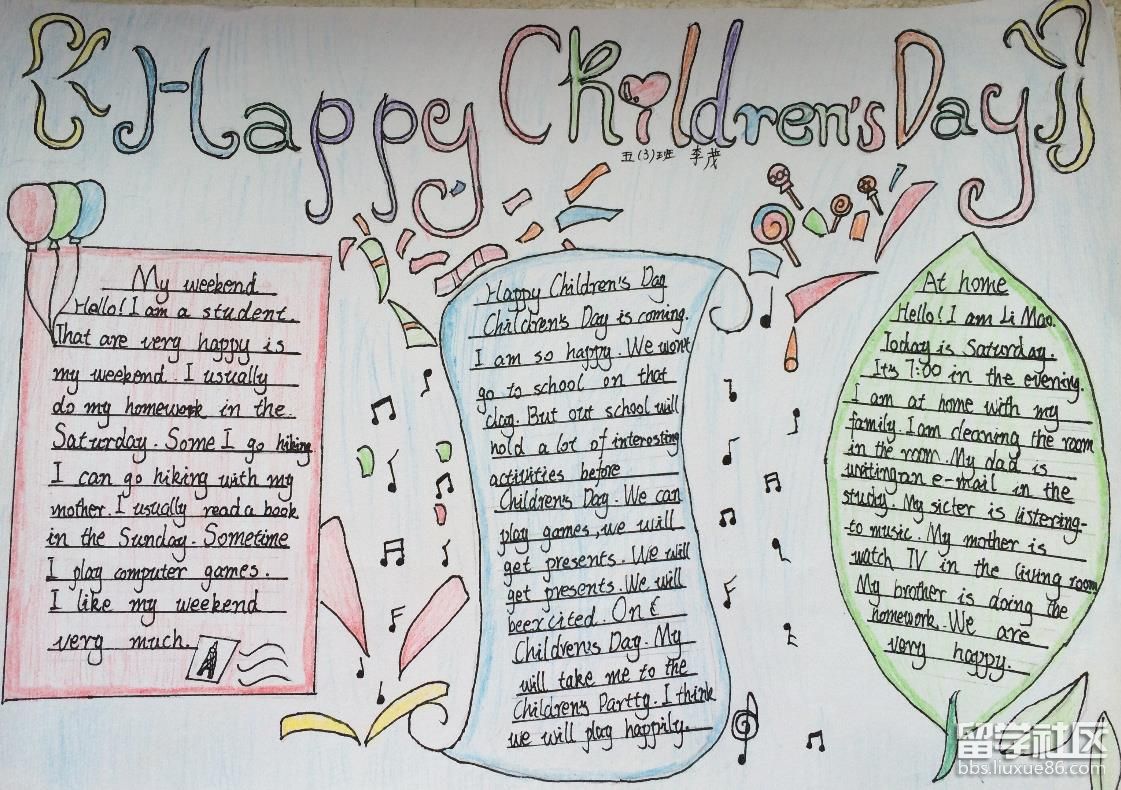 Happy Children's Day
五(3)班 李茂
My weekend
Hello! I am a student.
That are very happy is
my weekend. I usually
do my homework in the
Saturday. Some I go hiking
I can go hiking with my
mother. I usually read a book
in the Sunday. Sometime
I play computer games.
I like my weekend
very much.
Happy Children's Day
Children's Day is coming.
I am so happy. We won't
go to school on that
day. But out school will
hold a lot of interosting
activities before
Children's Day. We can
play games, we will
get presents. We will
get presents. We will
beexcited. On €
Children's Day. My
will take me to the
Children's Partty. I think
we will play happily.
At home
Hello! I am Li Mao.
Today is Saturday.
It's 7:00 in the evening.
I am at home with my
family. I am cleaning the room
in the room. My dad is
writing an e-mail in the
study. My sicter is listering-
to music. My mother is
watch TV in the living room
My brother is doing the
homework. We are
very happy.
留学社区
bbs.liuxue86.com